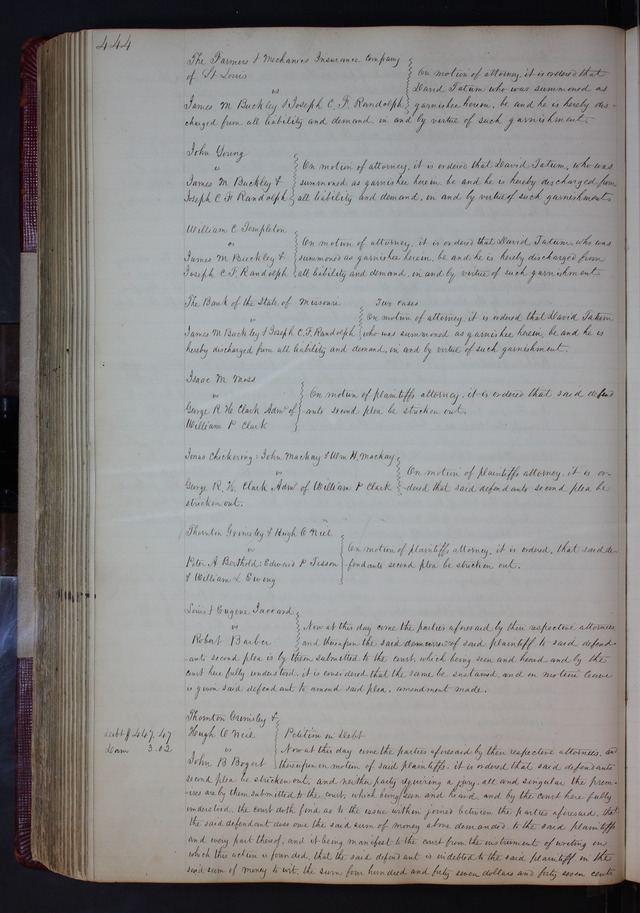 444
The Farmers & Mechanics Insurance Company
of St Louis
vs
James M Buckley & Joseph C. F. Randolph
On motion of attorney, it is ordered that
David Tatum who was summoned as
garnishee herein, be and he is hereby dis-
charged from all liability and demand in and by virtue of such garnishment.
John Young
vs
James M Buckley &
Joseph C F Randolph
On motion of attorney, it is ordered that David Tatum, who was
summoned as garnishee herein be and he is hereby discharged from
all liability and demand, in and by virtue of such garnishment
William C Templeton
vs
James M Buckley &
Joseph C F Randolph
On motion of attorney, it is ordered that David Tatum, who was
summoned as garnishee herein, be and he is hereby discharged from
all liability and demand, in and by virtue of such garnishment
The Bank of the State of Missouri
Two cases
vs
James M Buckley & Joseph C. F. Randolph
On motion of attorney, it is ordered that David Tatum
who was summoned as garnishee herein, be and he is
hereby discharged from all liability and demand, in and by virtue of such garnishment.
Isaac M Moss
vs
George R H Clark Admr of
William P Clark
On motion of plaintiffs attorney, it is ordered that said defend
ants second plea be stricken out.
Jonas Chickering, John Mackay & Wm H. Mackay
vs
George R. H. Clark Admr of William P Clark
On motion of plaintiffs attorney, it is or-
dered that said defendants second plea be
stricken out.
Thornton Grimsley & Hugh O Neil
vs
Peter A Berthold, Edward P Tesson
& William L Ewing
On motion of plaintiffs attorney, it is ordered, that said de-
fendants second plea be stricken out.
Louis & Eugene Jaccard
vs
Robert Barber
Now at this day come the parties aforesaid by their respective attornies
and thereupon the said demurrer of said plaintiff to said defend-
ants second plea is by them submitted to the court, which being seen and heard and by the
court here fully understood, it is considered that the same be sustained and on motion leave
is given said defendant to amend said plea, amendment made.
Thornton Grimsley &
Hugh O Neil
vs
John B Bogert
Debt $447.47
Dam 3.02
Petition in Debt
Now at this day come the parties aforesaid by their respective attornies, and
thereupon on motion of said plaintiffs, it is ordered that said defendants
second plea be stricken out, and neither party requiring a jury, all and singular the prem-
ises are by them submitted to the court, which being seen and heard, and by the court here fully
understood, the court doth find as to the issue within joined between the parties aforesaid, that
the said defendant does owe the said sum of money above demanded, to the said plaintiffs
and every part thereof, and it being manifest to the court from the instrument of writing on
which this action is founded, that the said defendant is indebted to the said plaintiff in the
said sum of money to wit, the sum four hundred and forty seven dollars and forty seven cents